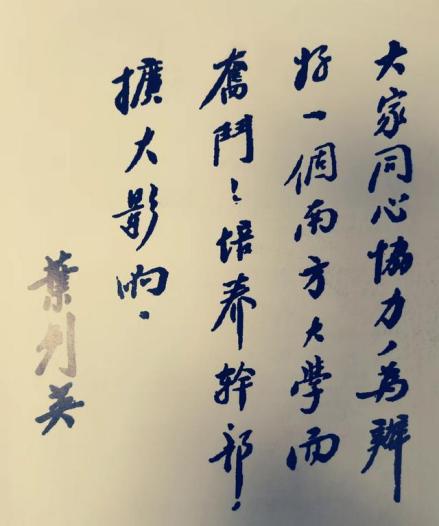 大家同心協力,為辦
好一個南方大學而
奮鬥!培养幹部!
擴大影响.
葉剑英